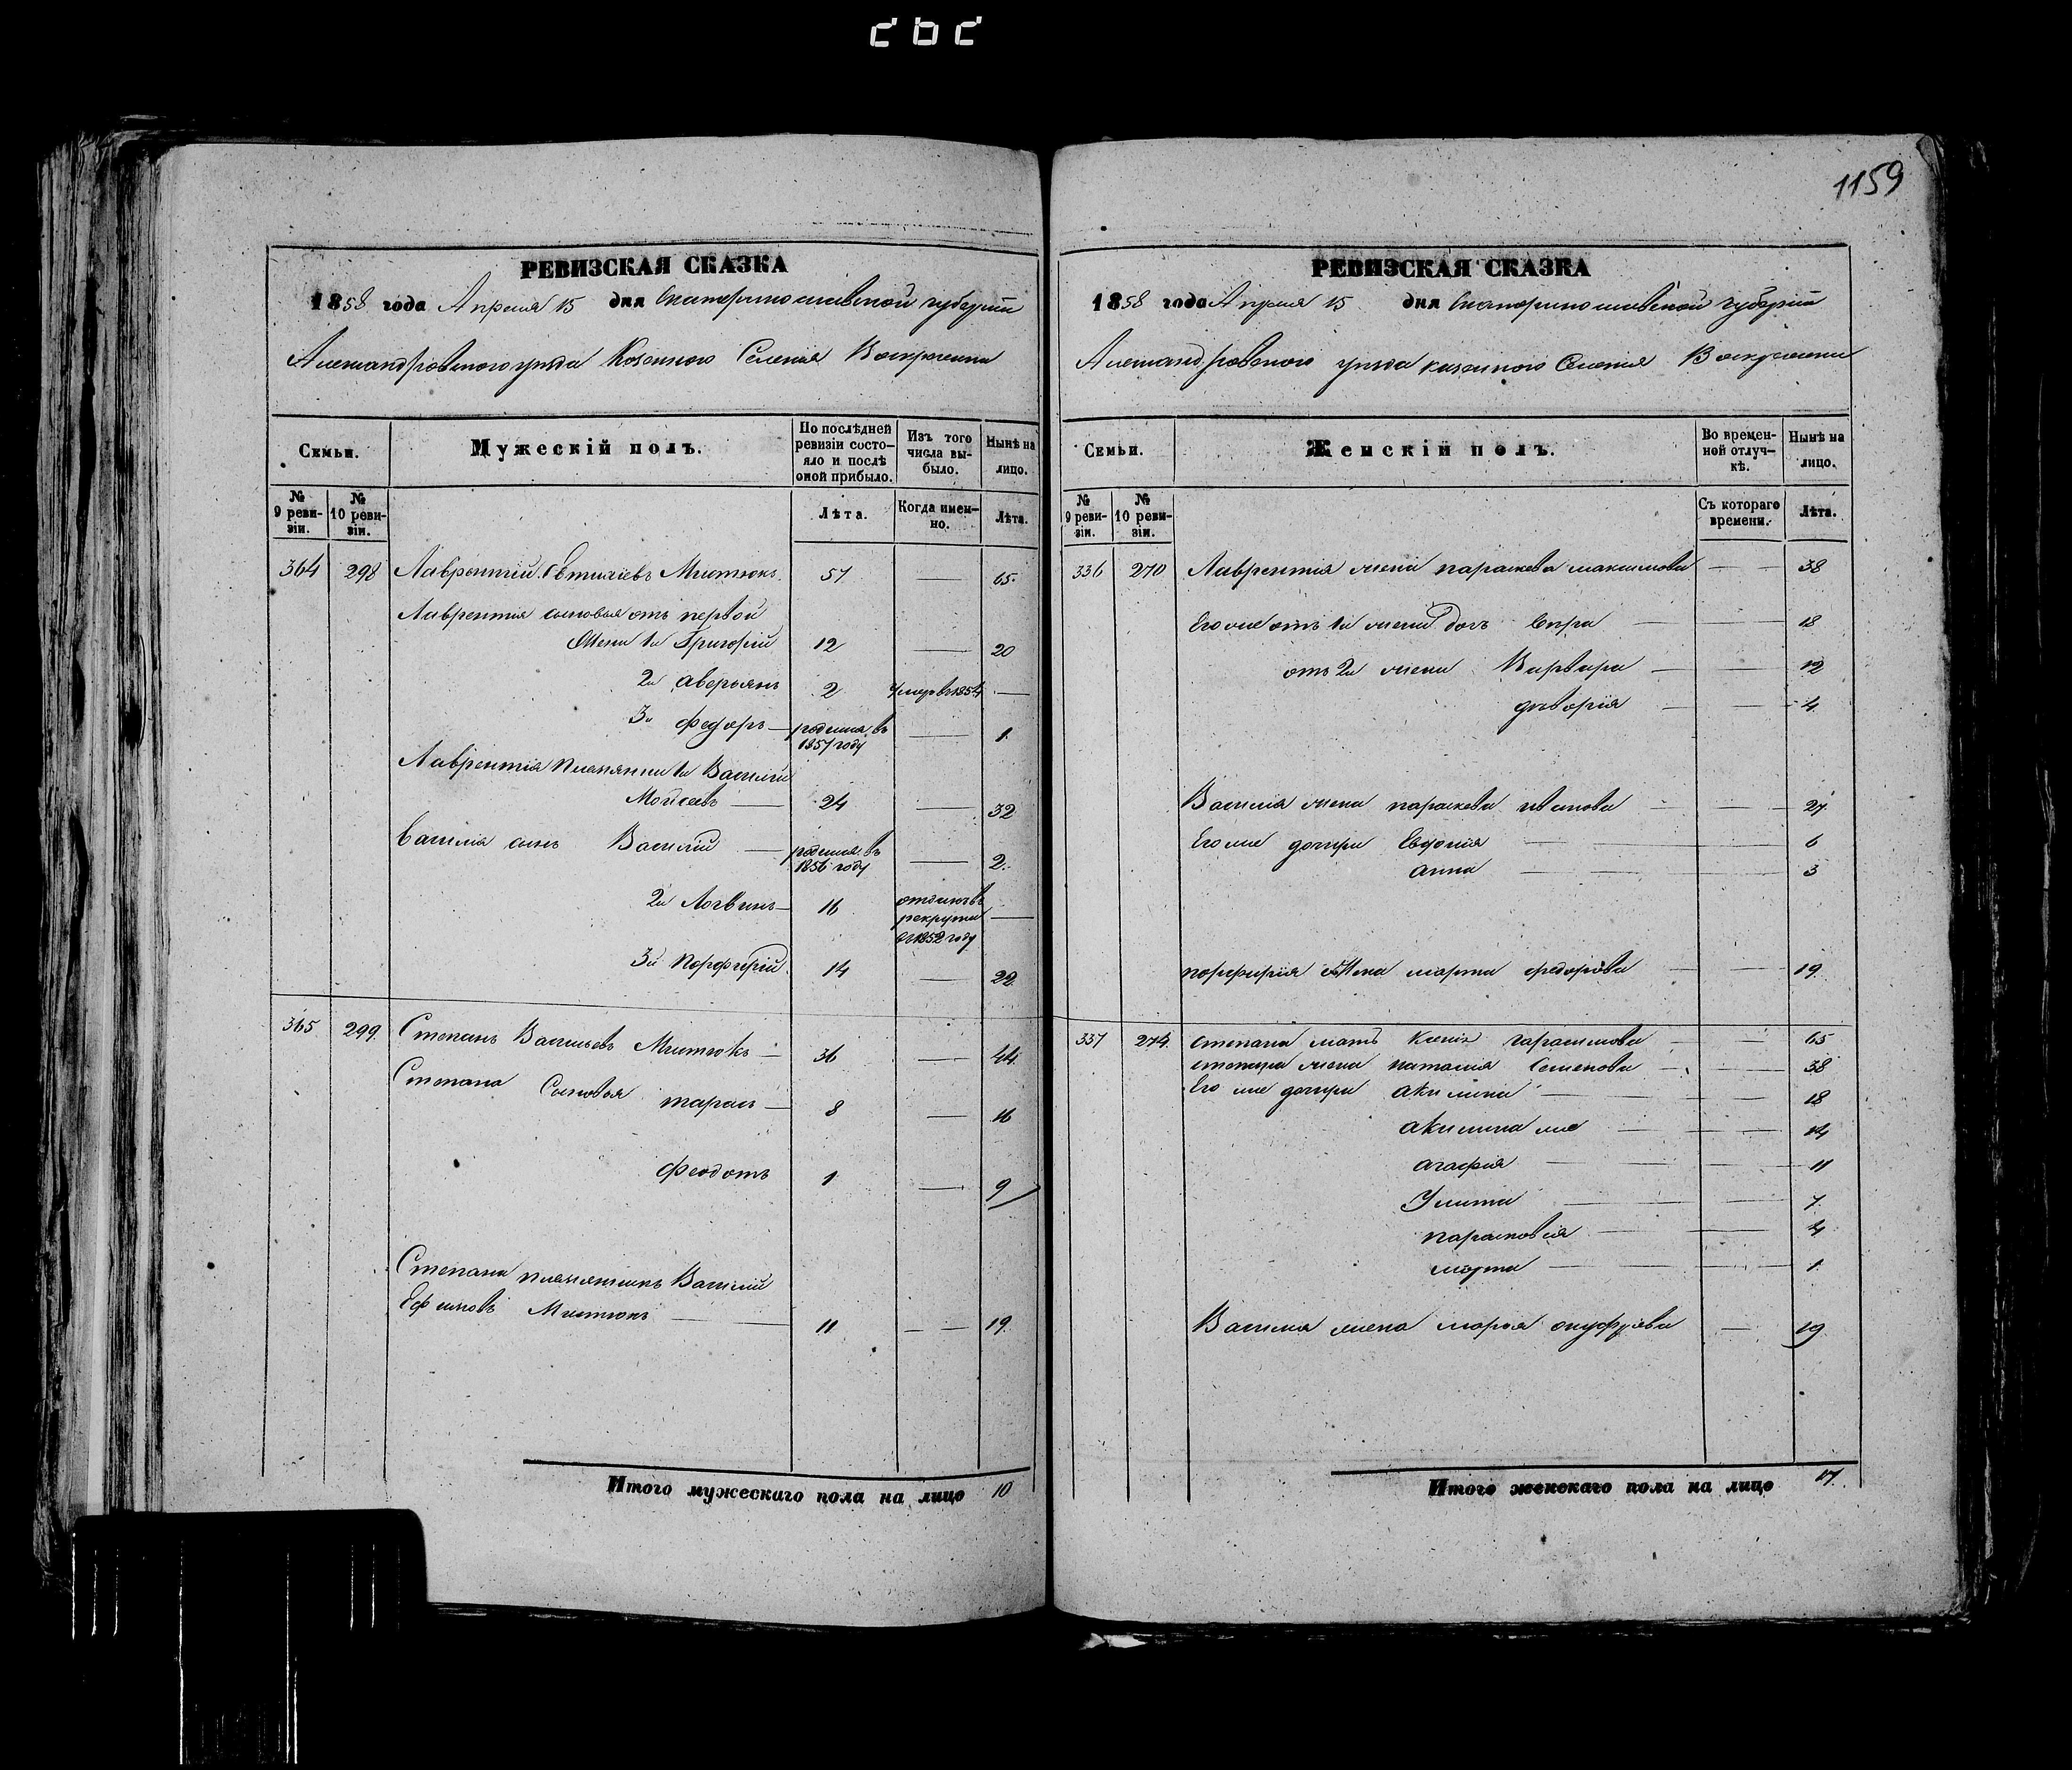 1159
РЕВИЗСКАЯ СКАЗКА
1858 года Апреля 15 дня Екатеринославской губернии
Александровского уезда Казенного Селения Воскресенки
Семьи.
Мужескій полъ.
По послѣдней ревизіи состо-
яло и послѣ оной прибыло.
Изъ того числа вы-
было.
Нынѣ на лицо.
№ 9 реви-
зіи.
№ 10 реви-
зіи.
Лѣта.
Когда имен-
но.
Лѣта.
364 298 Лаврентій Евтихіевъ Миттюкъ 57 — 65.
Лаврентія сыновья отъ первой
Жены 1й Григорій 12 — 20
2й аверьянъ 2 Умеръ въ 1854 —
3й федоръ — родился въ 1857 году — 1.
Лаврентія племянники 1й Василій
Мойсеевъ — 24 — 32
Василія сынъ Василій — родился въ 1856 году — 2.
2й Логвинъ — 16 отданъ въ рекруты въ 1852 году —
3й Порфирій 14 — 22.
365 299. Степанъ Васильевъ Миттюкъ — 36 — 44.
Степана Сыновья тарасъ — 8 — 16
феодотъ 1 — 9
Степана племянникъ Василій
Ефимовъ Миттюкъ — 11 — 19.
Итого мужескаго пола на лицо 10
РЕВИЗСКАЯ СКАЗКА
1858 года Апреля 15 дня Екатеринославской губерніи
Александровского уезда казенного Селения Воскресенки
Семьи.
Женскій полъ.
Во времен-
ной отлуч-
кѣ.
Нынѣ на лицо.
№ 9 реви-
зіи.
№ 10 реви-
зіи.
Съ котораго времени.
Лѣта.
336 270 Лаврентія жена параскева максимова — 38
Его же отъ 1й жены дочь — 18
отъ 2й жены Варвара — 12
— 4.
Василія жена параскева иванова — 27.
Его же дочери Евдокія — 6
анна — 3
порфирія Жена марта федорова — 19.
337 274. степана мать Ксенія гарасимова — 65
степана жена наталія Семенова — 38
Его же дочери акилина — 18
акилина же — 14
агафія — 11
Улита — 7.
парасковія — 4
марта — 1.
Василія жена марья онуфріева — 19
Итого женскаго пола на лицо 17.